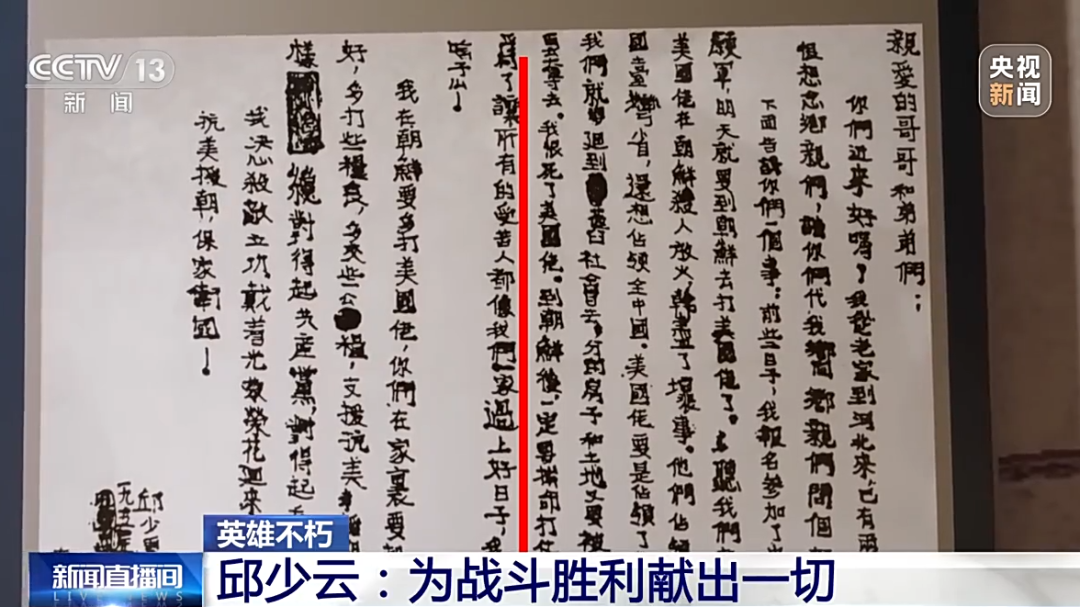 CCTV 13
新闻
央视
新闻
親愛的哥哥和弟弟們：
你們近來好嗎？我從老家到河北來，已有兩
但想念鄉親們，請你們代我向鄉親們問個
下面告訴你們一個事：前些日子，我報名參加了
願軍，明天就要到朝鮮去打美國佬了。聽我們
美國佬在朝鮮殺人放火，幹盡了壞事。他們佔領
國臺灣省，還想佔領全中國。美國佬要是佔領了
我們就 迴到舊社會去，分的房子和土地又要被
去。我恨死了美國佬。到朝鮮後，一定要拚命打
爲了讓所有的受苦人都像我們一家過上好日子，我
啥子
我在朝鮮要多打美國佬，你們在家裏要
好，多打些糧食，多交些公糧，支援抗美
樣 纔對得起共産黨，對得起
我決心殺敵立功，戴着光 榮花迴來
抗美援朝，保家衛國！
邱少
一九五
英雄不朽
新闻直播间
LIVE NEWS
邱少云：为战斗胜利献出一切